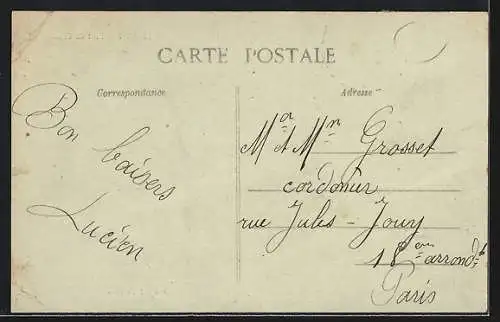 CARTE POSTALE
Correspondance
Bon baisers
Lucien
Adresse
Ma et Mr Grosset
cordonier
rue Jules-Jouy
18em arrondt
Paris